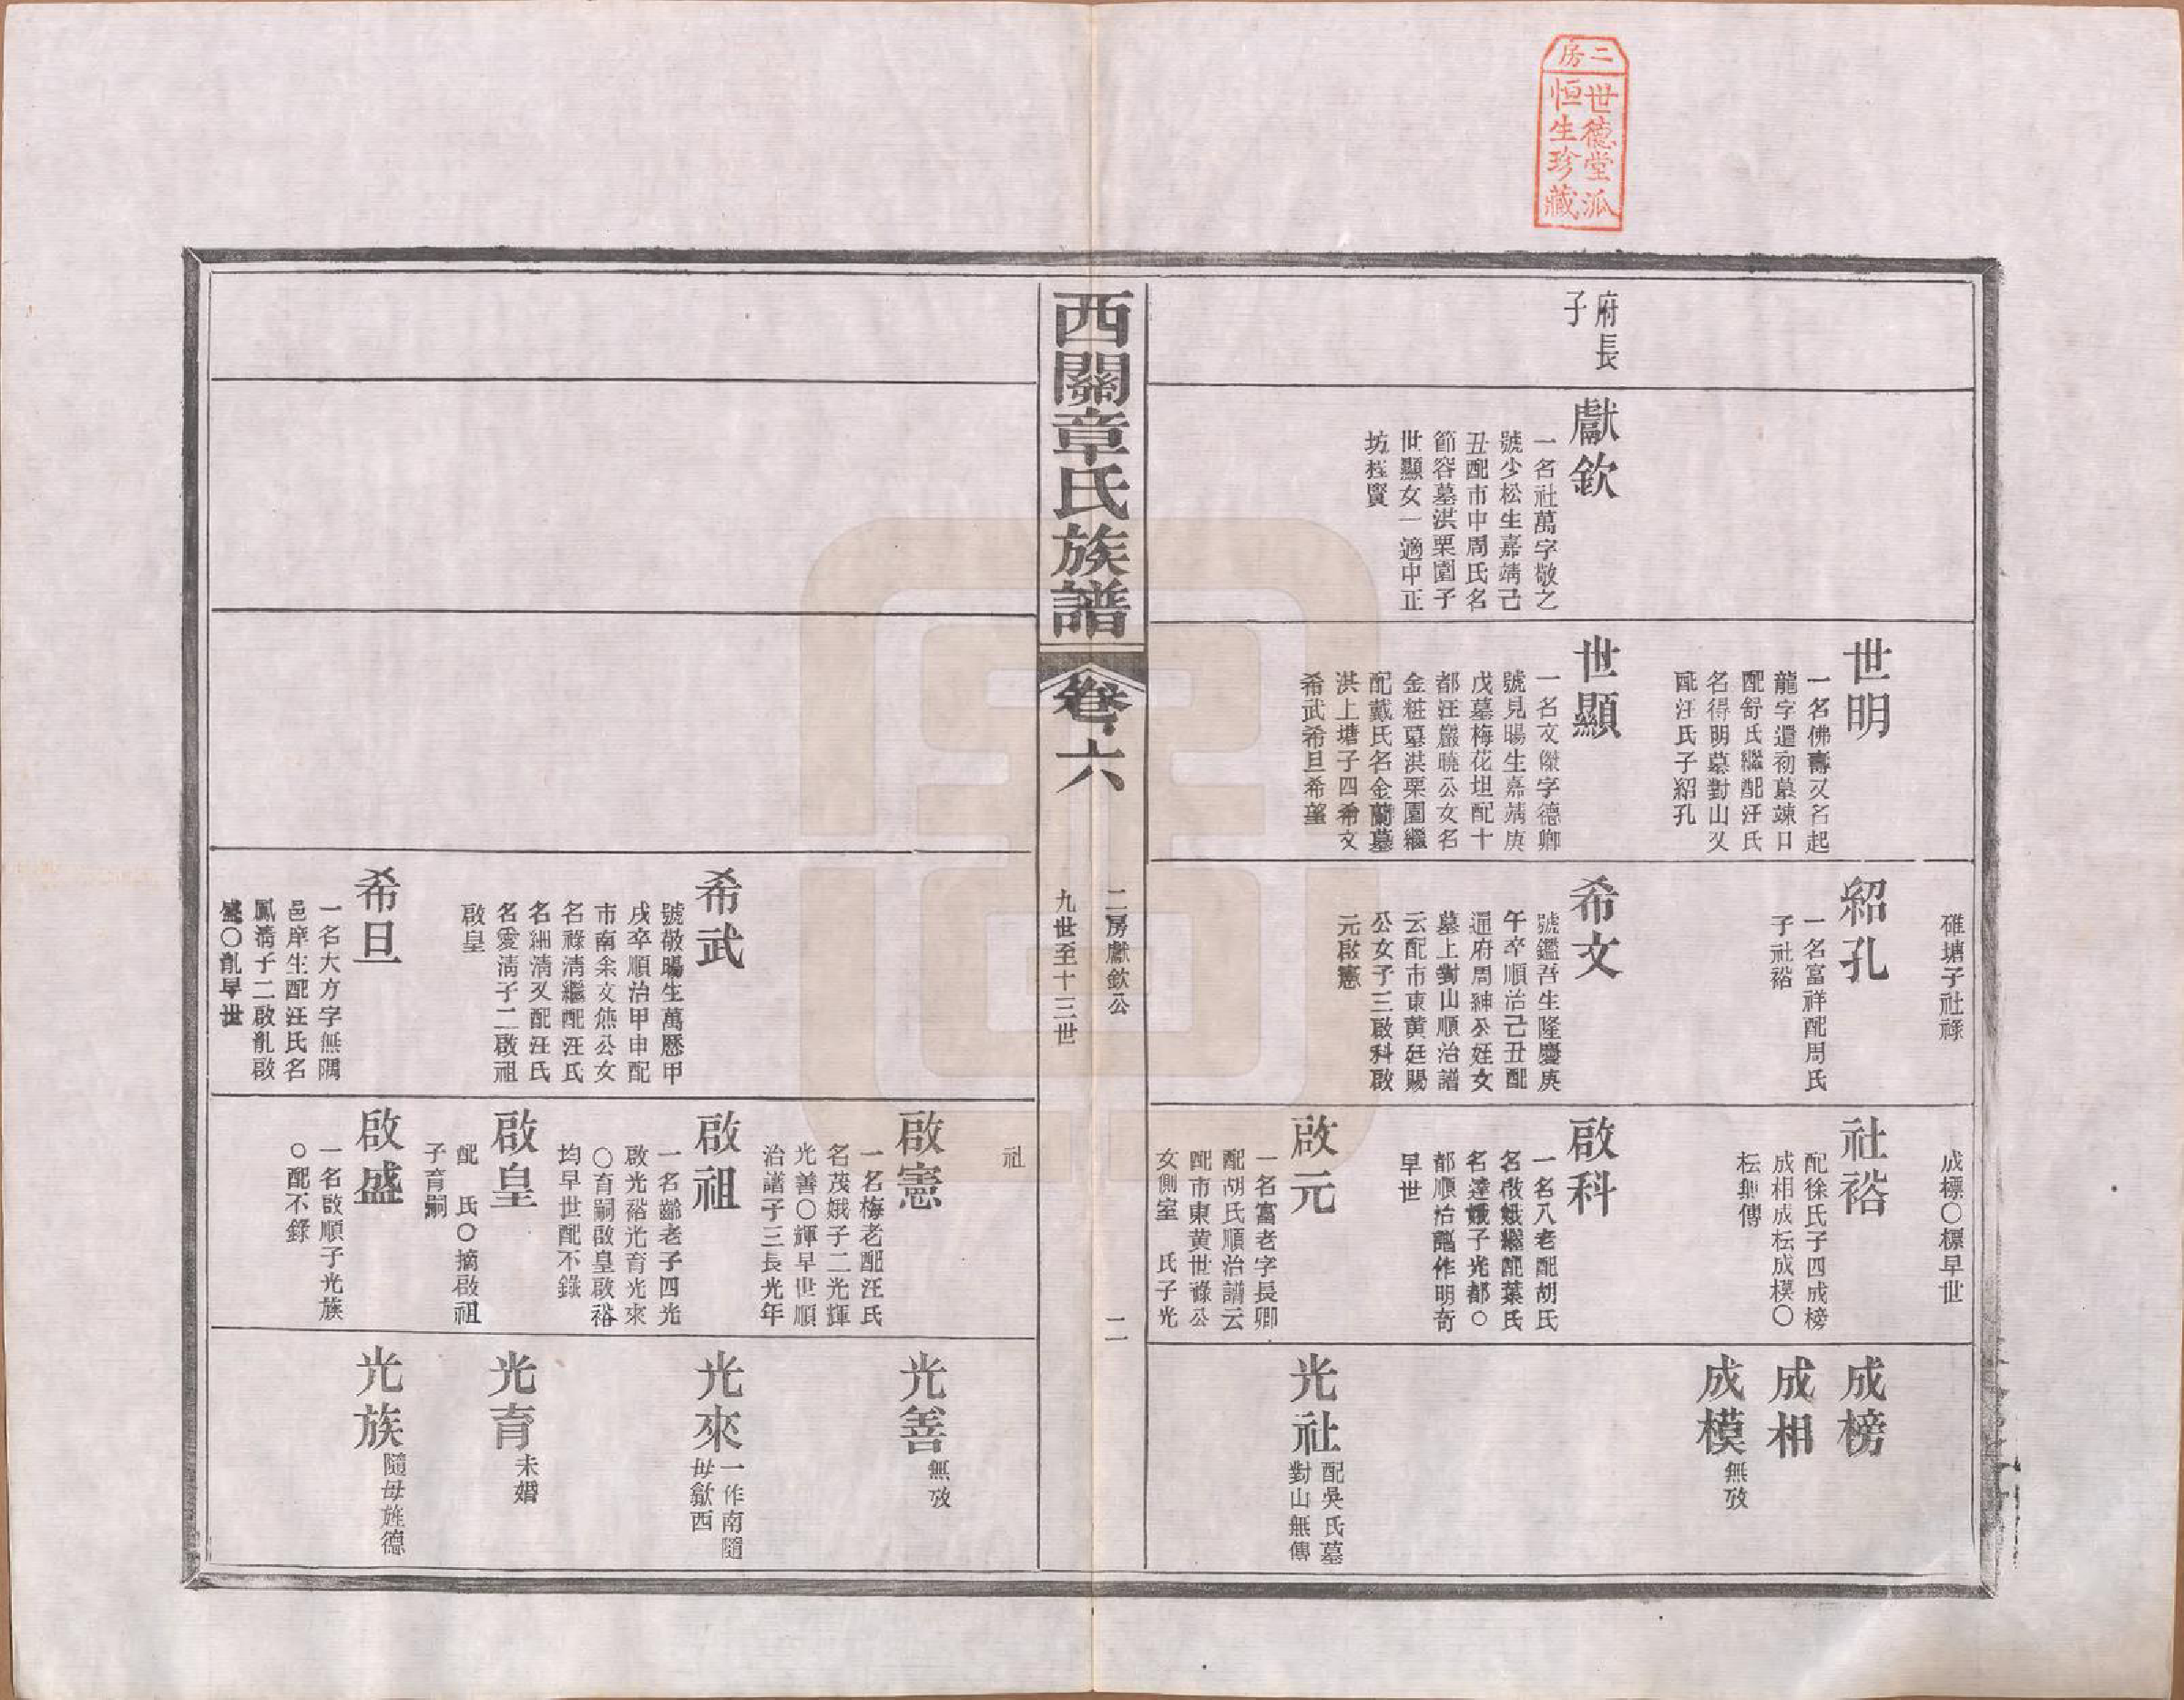 二房
世德堂派
恒生珍藏
府長
子
獻欽
一名社萬字敬之
號少松生嘉靖己
丑配市中周氏名
節容墓洪栗園子
世顯女一適中正
坊程賢
世明
一名佛壽又名起
龍字還初墓竦口
配舒氏繼配汪氏
名得明墓對山又
配汪氏子紹孔
世顯
一名文傑字德卿
號見暘生嘉靖庚
戊墓梅花坦配十
都汪巖曉公女名
金粧墓洪栗園繼
配戴氏名金蘭墓
洪上塘子四希文
希武希旦希堇
碓塘子社祿
紹孔
一名富祥配周氏
子社裕
希文
號鑑吾生隆慶庚
午卒順治己丑配
通府周紳公姪女
墓上對山順治譜
云配市東黃廷賜
公女子三啟科啟
元啟憲
成標〇標早世
社裕
配徐氏子四成榜
成相成枟成模〇
枟無傳
啟科
一名八老配胡氏
名啟娥繼配葉氏
名達娥子光都〇
都順治譜作明奇
早世
啟元
一名富老字長卿
配胡氏順治譜云
配市東黄世祿公
女側室　氏子光
成榜
成相
成模
無攷
光社
配吳氏墓
對山無傳
西關章氏族譜
卷六
二房獻欽公
九世至十三世
二
希武
號敬暘生萬歷甲
戌卒順治甲申配
市南余文熊公女
名祿淸繼配汪氏
名細淸又配汪氏
名愛淸子二啟祖
啟皇
希旦
一名大方字無隅
邑庠生配汪氏名
鳳淸子二啟胤啟
盛〇胤早世
祖
啟憲
一名梅老配汪氏
名茂娥子二光輝
光善〇輝早世順
治譜子三長光年
啟祖
一名齡老子四光
啟光裕光育光來
〇育嗣啟皇啟裕
均早世配不錄
啟皇
配　氏〇摘啟祖
子育嗣
啟盛
一名啟順子光族
〇配不錄
光善
無攷
光來
一作南隨
母歙西
光育
未婚
光族
隨母旌德